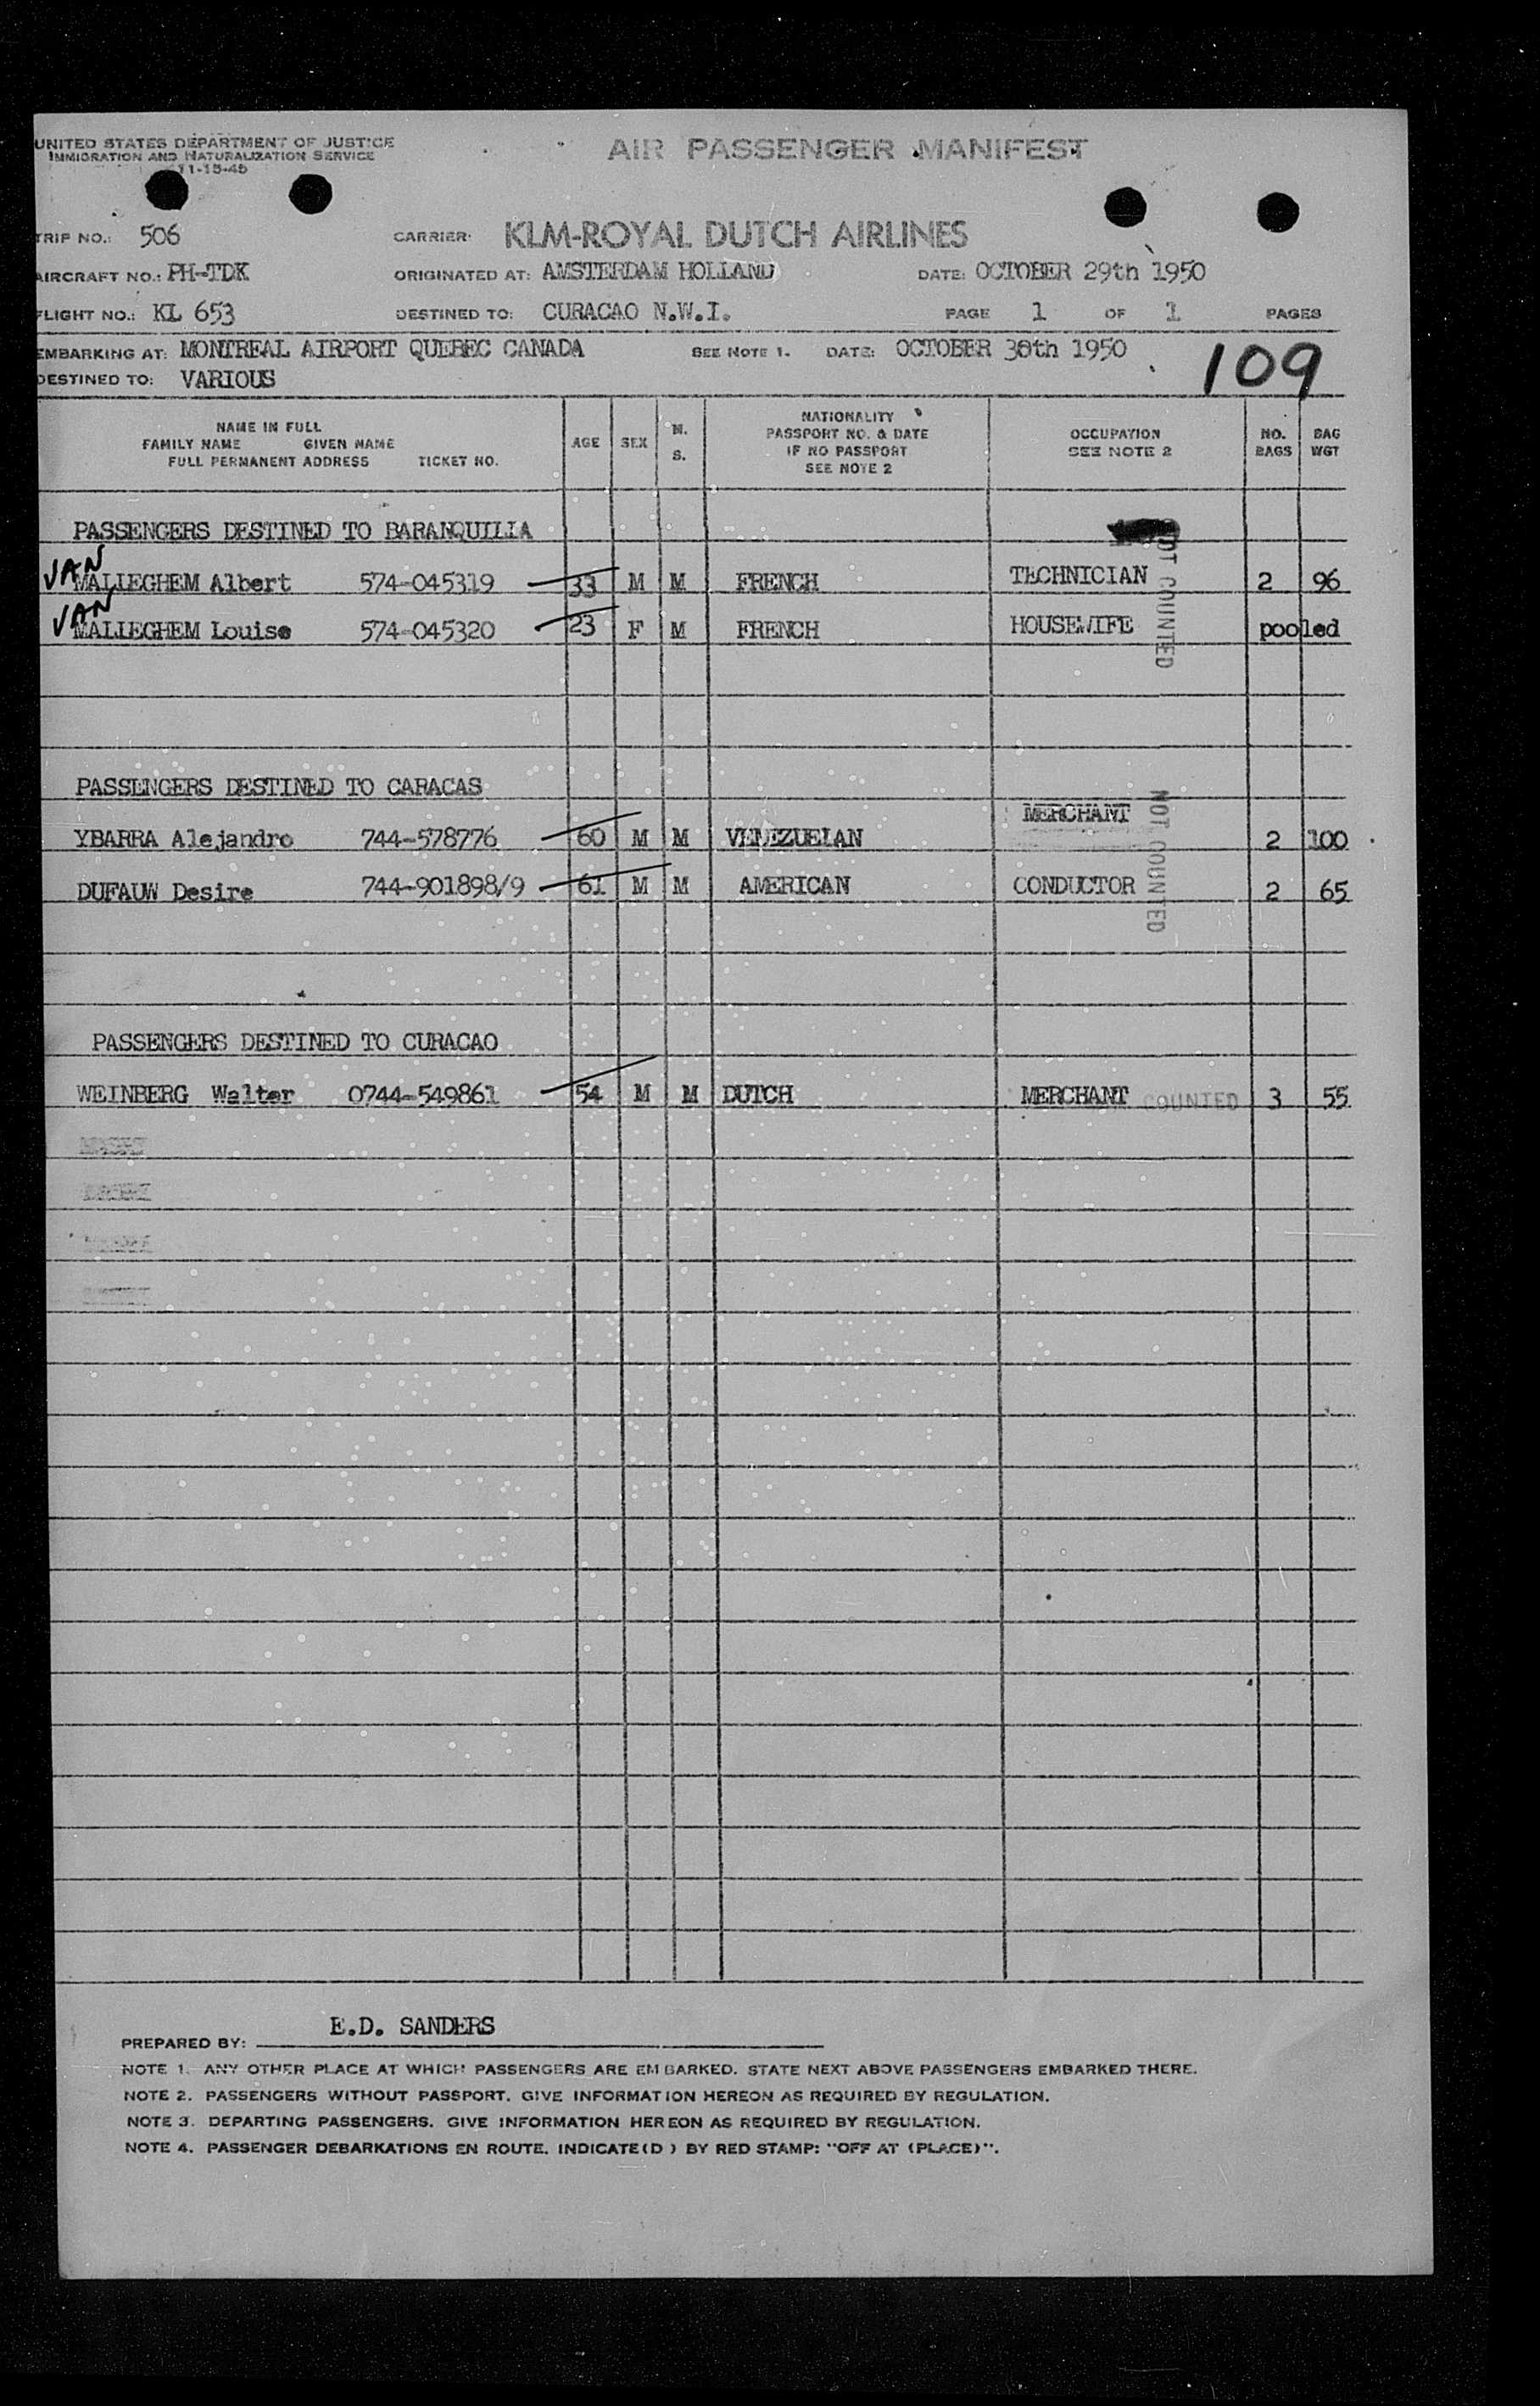 UNITED STATES DEPARTMENT OF JUSTICE
IMMIGRATION AND NATURALIZATION SERVICE
11-15-45
AIR PASSENGER MANIFEST
TRIP NO.: 506 CARRIER: KLM-ROYAL DUTCH AIRLINES
AIRCRAFT NO.: PH-TDK ORIGINATED AT: AMSTERDAM HOLLAND DATE: OCTOBER 29th 1950
FLIGHT NO.: KL 653 DESTINED TO: CURACAO N.W.I. PAGE 1 OF 1 PAGES
EMBARKING AT: MONTREAL AIRPORT QUEBEC CANADA SEE NOTE 1. DATE: OCTOBER 30th 1950
109
DESTINED TO: VARIOUS
NAME IN FULL
FAMILY NAME GIVEN NAME
FULL PERMANENT ADDRESS TICKET NO.
AGE SEX M. S.
NATIONALITY
PASSPORT NO. & DATE
IF NO PASSPORT
SEE NOTE 2
OCCUPATION
SEE NOTE 2
NO. BAGS
BAG WGT
PASSENGERS DESTINED TO BARANQUILIA
VAN MALLEGHEM Albert 574-045319 33 M M FRENCH TECHNICIAN 2 96
VAN MALLEGHEM Louise 574-045320 23 F M FRENCH HOUSEWIFE pooled
NOT COUNTED
PASSENGERS DESTINED TO CARACAS
YBARRA Alejandro 744-578776 60 M M VENEZUELAN MERCHANT 2 100
DUFAUW Desire 744-901898/9 61 M M AMERICAN CONDUCTOR 2 65
NOT COUNTED
PASSENGERS DESTINED TO CURACAO
WEINBERG Walter 0744-549861 54 M M DUTCH MERCHANT COUNTED 3 55
PREPARED BY: E.D. SANDERS
NOTE 1. ANY OTHER PLACE AT WHICH PASSENGERS ARE EMBARKED. STATE NEXT ABOVE PASSENGERS EMBARKED THERE.
NOTE 2. PASSENGERS WITHOUT PASSPORT. GIVE INFORMATION HEREON AS REQUIRED BY REGULATION.
NOTE 3. DEPARTING PASSENGERS. GIVE INFORMATION HEREON AS REQUIRED BY REGULATION.
NOTE 4. PASSENGER DEBARKATIONS EN ROUTE. INDICATE(D) BY RED STAMP: "OFF AT (PLACE)".